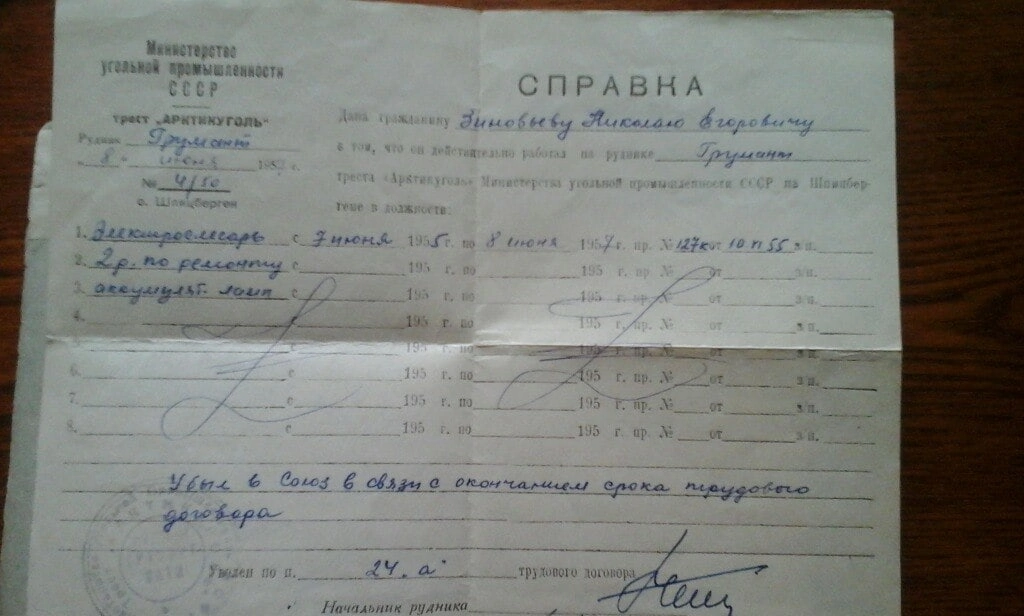 Министерство
угольной промышленности
СССР
трест „АРКТИКУГОЛЬ"
Рудник Грумант
„8" июня 1957 г.
№ 4/50
о. Шпицберген
СПРАВКА
Дана гражданину Зиновьеву Николаю Егоровичу
в том, что он действительно работал на руднике Грумант
треста «Арктикуголь» Министерства угольной промышленности СССР на Шпицбер-
гене в должности:
1. Электрослесарь с 7 июня 1955 г. по 8 июня 1957 г. пр. № 127к от 10 п 55 з/п.
2. 2р. по ремонту с 195 г. по 195 г. пр. № от з/п.
3. аккумулят. ламп с 195 г. по 195 г. пр. № от з/п.
4. с 195 г. по 195 г. пр. № от з/п.
с 195 г. по 195 г. пр. № от з/п.
6. с 195 г. по 195 г. пр. № от з/п.
7. с 195 г. по 195 г. пр. № от з/п.
8. с 195 г. по 195 г. пр. № от з/п.
Убыл в Союз в связи с окончанием срока трудового
договора
Уволен по п. 24. а" трудового договора
Начальник рудника